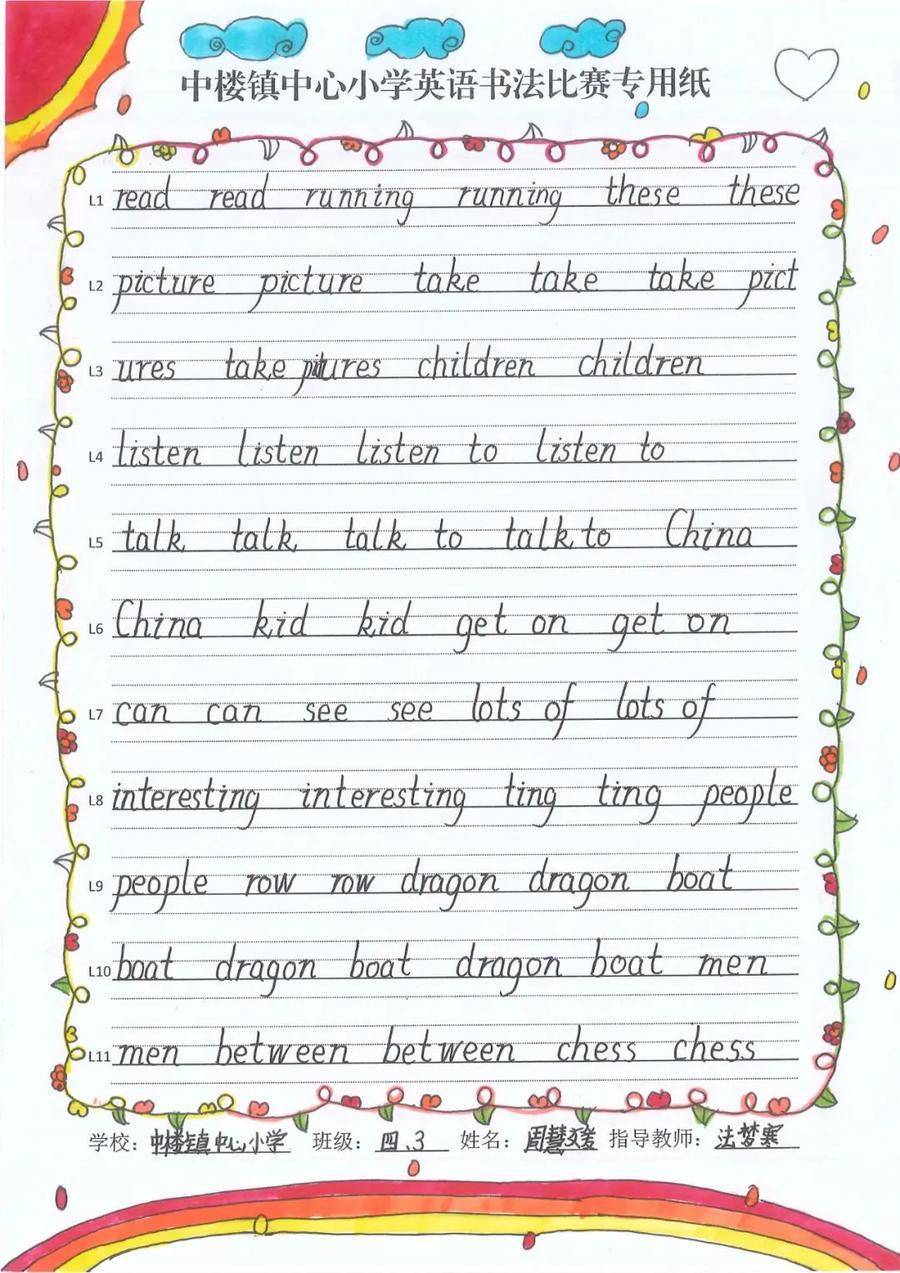 中楼镇中心小学英语书法比赛专用纸
L1 read read running running these these
L2 picture picture take take take pict
L3 ures take pictures children children
L4 listen listen listen to listen to
L5 talk talk talk to talk to China
L6 China kid kid get on get on
L7 can can see see lots of lots of
L8 interesting interesting ting ting people
L9 people row row dragon dragon boat
L10 boat dragon boat dragon boat men
L11 men between between chess chess
学校：中楼镇中心小学 班级：四、3 姓名：周慧 指导教师：法梦寒